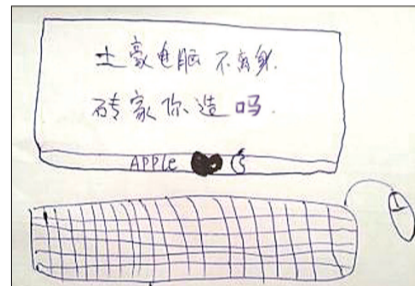 土豪电脑不离身.
砖家你造吗.
APPLE